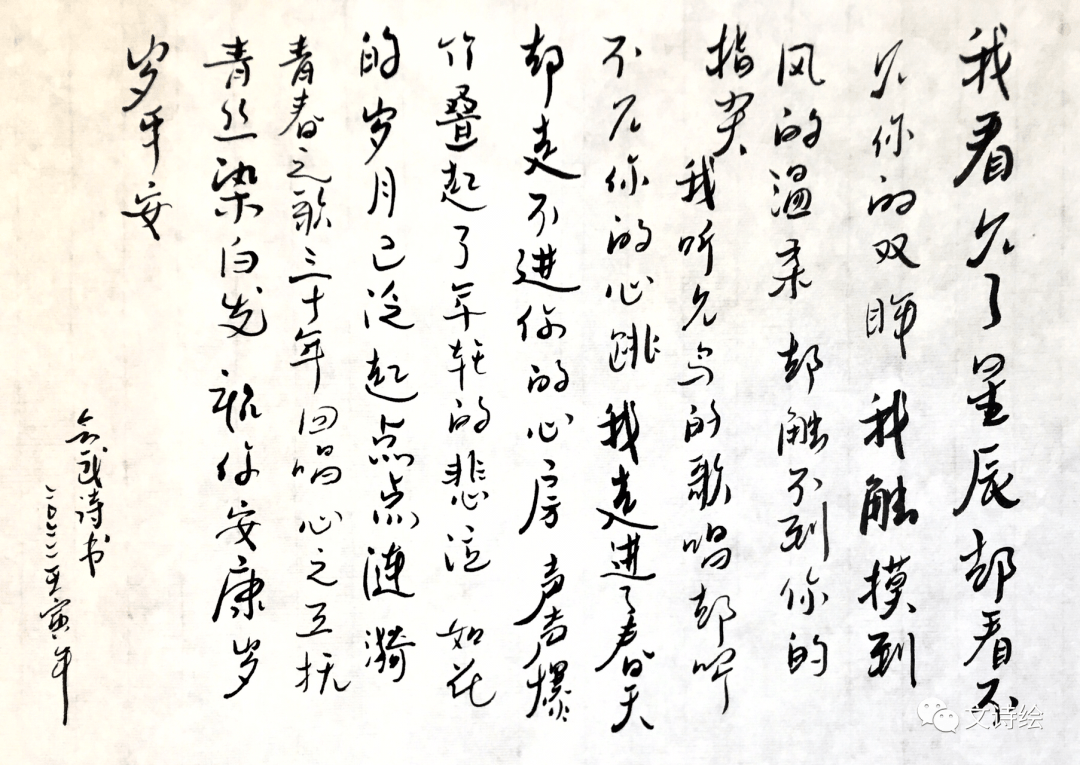 我看见了星辰却看不
见你的双眸 我触摸到
风的温柔 却触不到你的
指尖 我听见鸟的歌唱却听
不见你的心跳 我走进了春天
却走不进你的心房 声声爆
竹叠起了年轮的悲泣 如花
的岁月已泛起点点涟漪
青春之歌三十年回唱心之互抚
青丝染白发 祝你安康岁
岁平安
诗书
二〇二二壬寅年
文诗绘